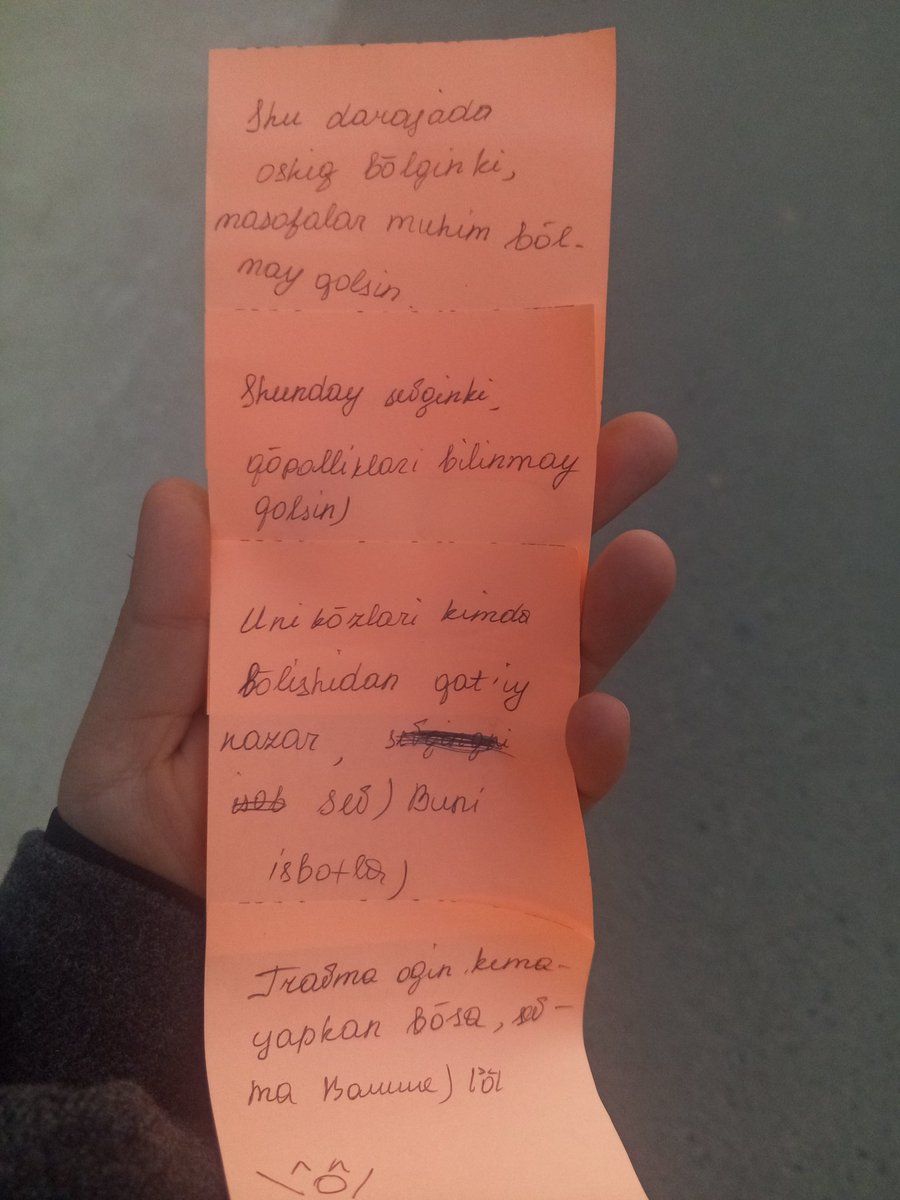 Shu darajada
oshiq bōlginki,
masofalar muhim bōl-
may qolsin
Shunday sevginki,
qōpolliklari bilinmay
qolsin)
Uni kōzlari kimda
bōlishidan qat'iy
nazar,
sev) Buni
isbotla)
Travma ogin kema-
yapkan bōsa, sev-
ma